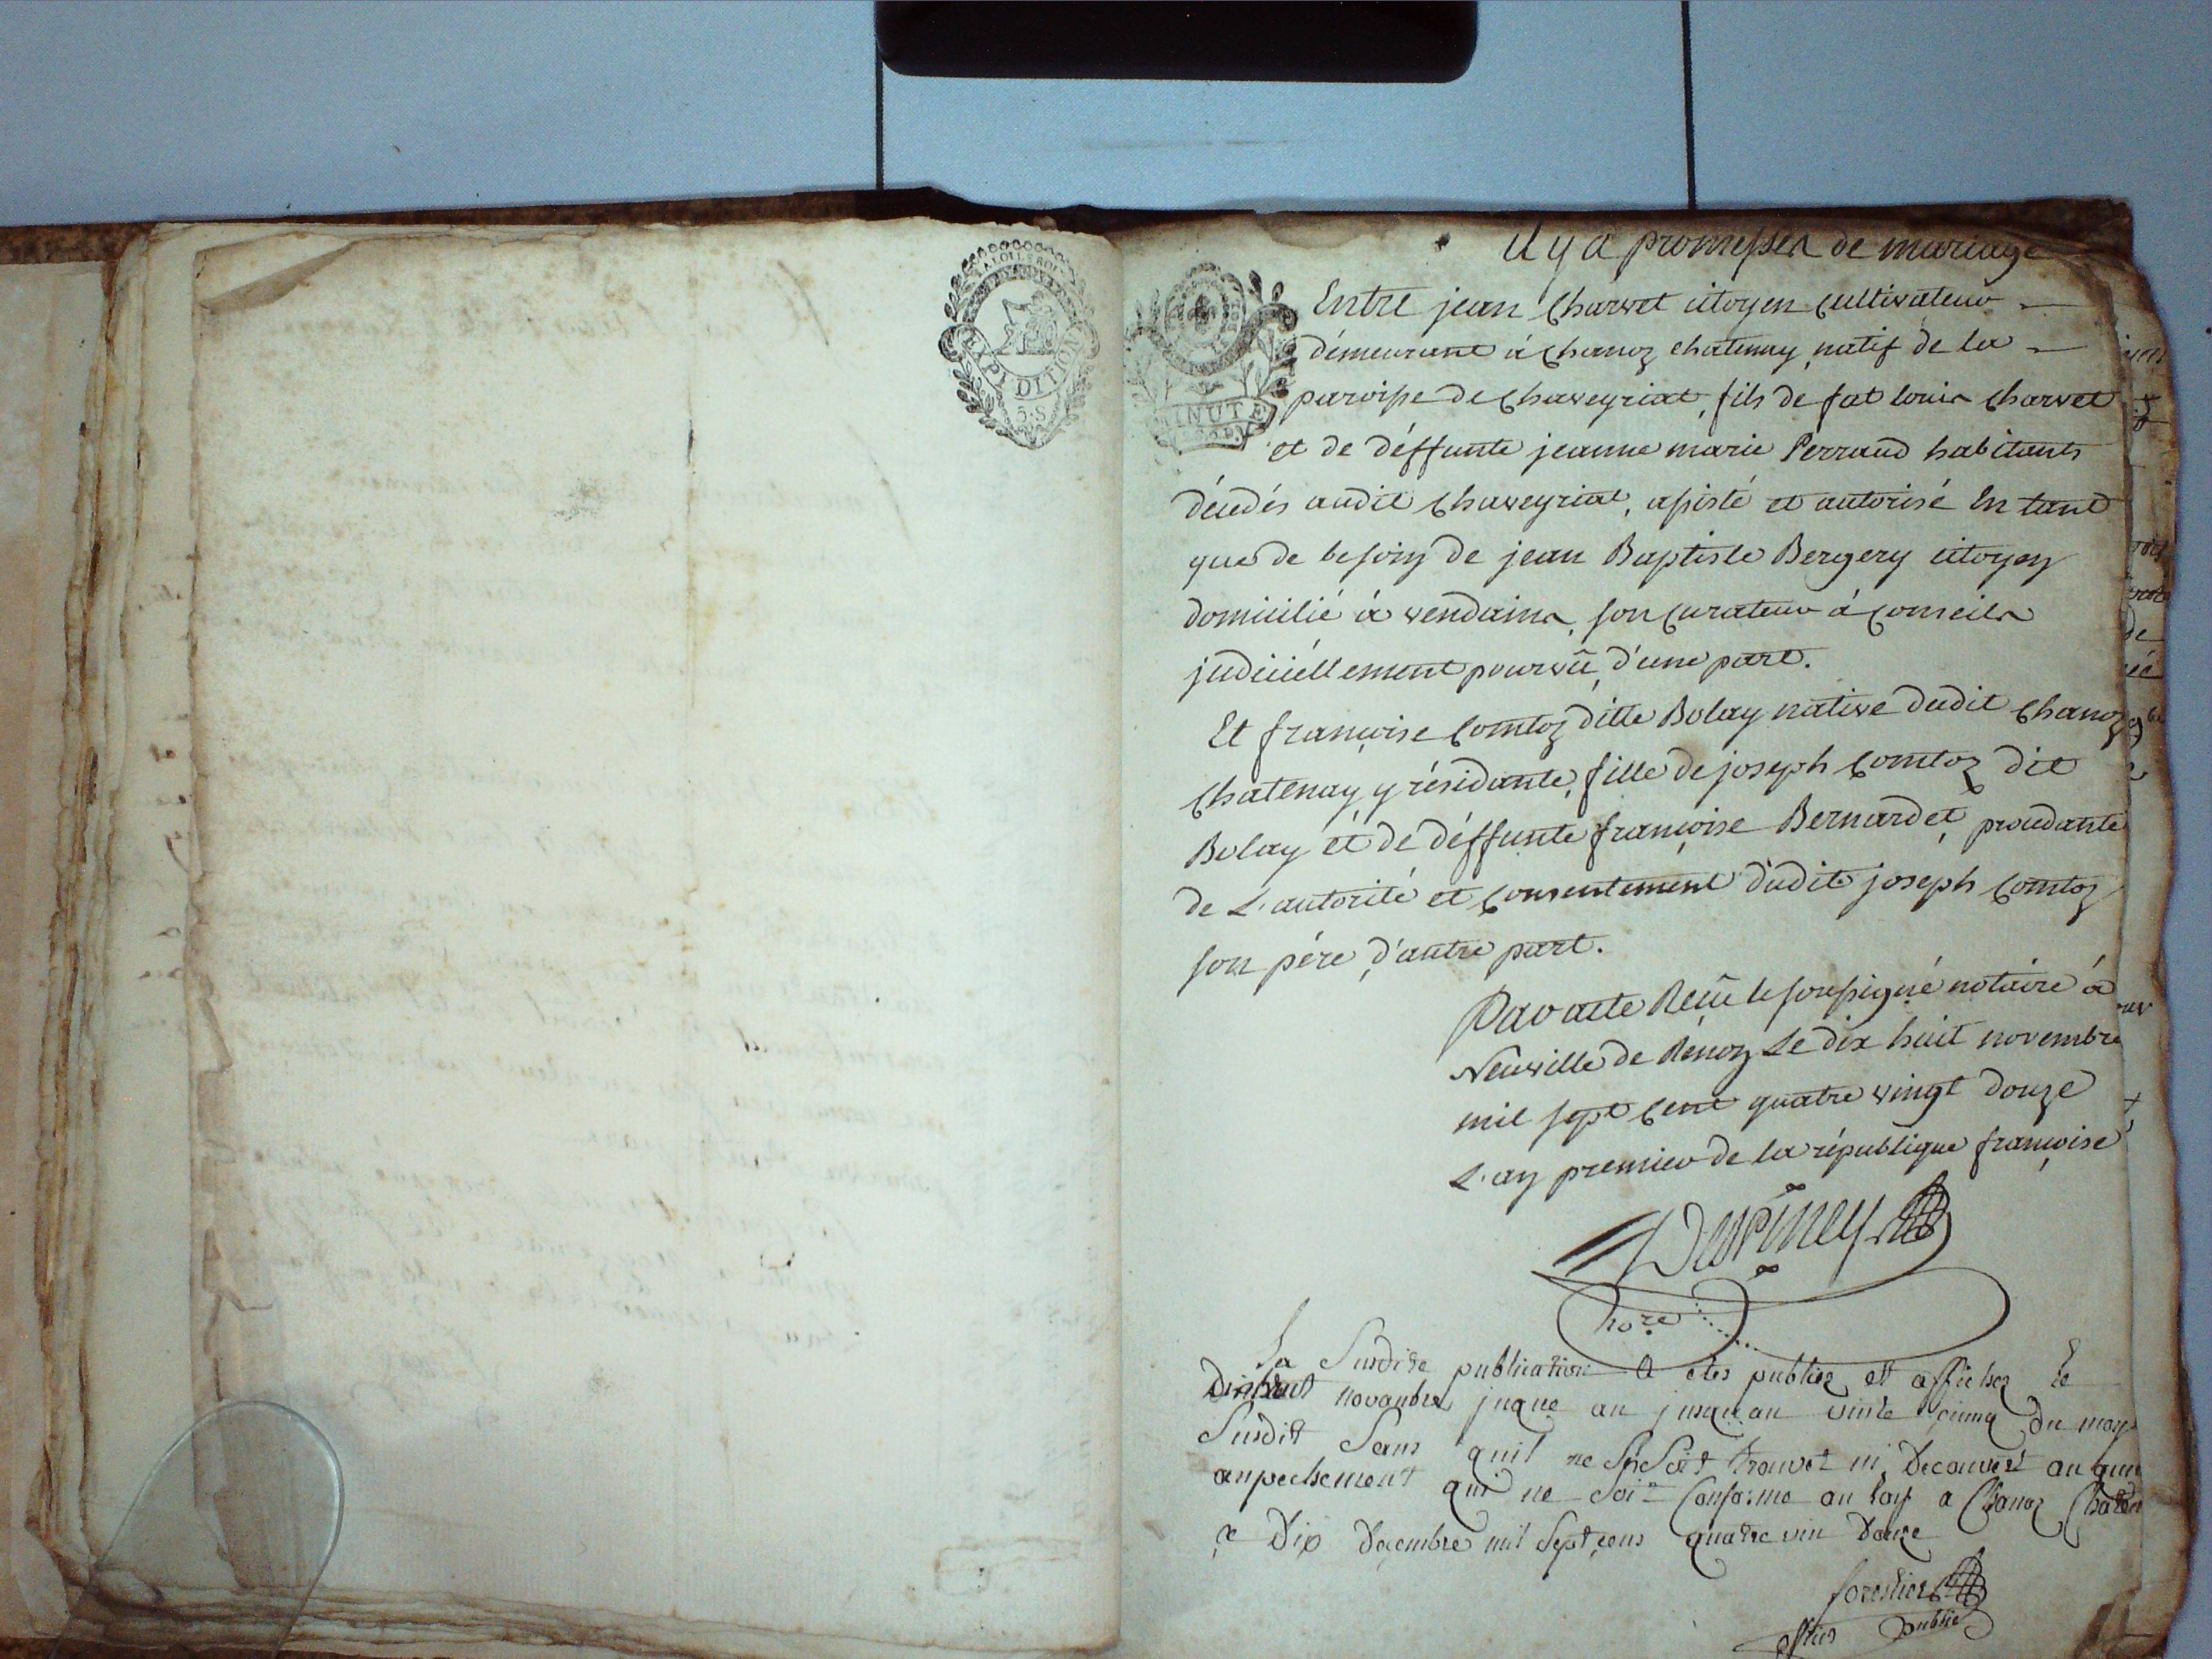 LA LOI LE ROI
EXPÉDITION
5.S
MINUTE
il y a promesses de mariage
Entre jean Charvet citoyen cultivateur
démeurant à Chanoz chatenay, natif de la
paroisse de Chaveyriat, fils de fat louis Charvet
et de déffunte jeanne marie Perraud habitants
décédés audit Chaveyriat, assisté et autorisé En tant
que de besoin de jean Baptiste Bergery citoyen
domicilié à vendains, son Curateur à Conseils
judiciellement pourvû, d'une part.
Et françoise Comtoz ditte Bolay native dudit Chanoz
Chatenay y résidante, fille de joseph Comtoz dit
Bolay et de déffunte françoise Bernardet, procédante
de L'autorité et Consentement dudit joseph Comtoz
son père, d'autre part.
Par acte Reçû le soussigné notaire à
Neuville de Renoz Le dix huit novembre
mil sept Cent quatre vingt douze
L'an premier de la république françoise
nore
La Susdite publication a etes publiez et affichez le
Dixhuit novanbre juque au jusqu'au vinte cinq du moy
Susdit Sans quil ne Se Soit trouvet ni Decouvert auqun
anpechement qui ne Soit Conforme au loy a Chanoz Chaten
ce Dix Decembre mil Sept cens quatre vin Douze
forestier
offier public